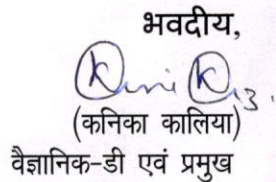 भवदीय,
(कनिका कालिया)
वैज्ञानिक-डी एवं प्रमुख